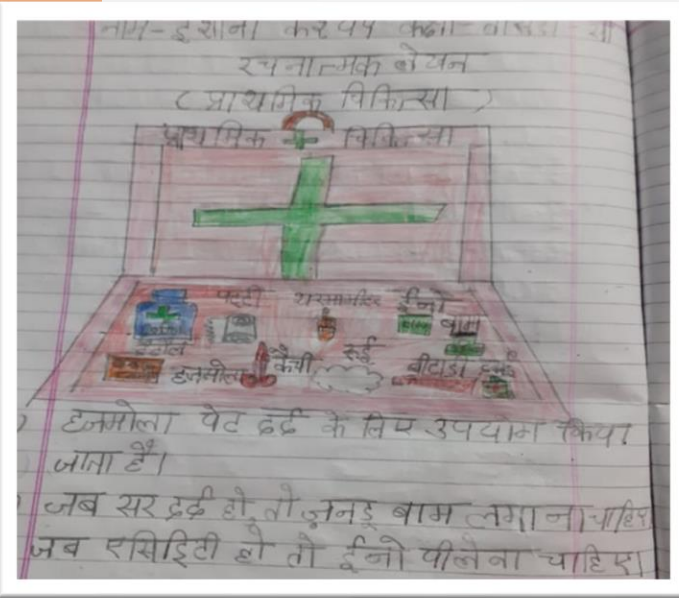 नाम- इशाना कश्यप कक्षा-
रचनात्मक लेखन
( प्राथमिक चिकित्सा )
प्राथमिक चिकित्सा
पट्टी थरमामीटर ईनो
बाम
डेटॉल
हाजमोला कैंची रूई बीटाडीन
हाजमोला पेट दर्द के लिए उपयोग किया
जाता है।
जब सर दर्द हो, तो बाम लगाना चाहिए
जब एसिडिटी हो तो ईनो पीलेना चाहिए।